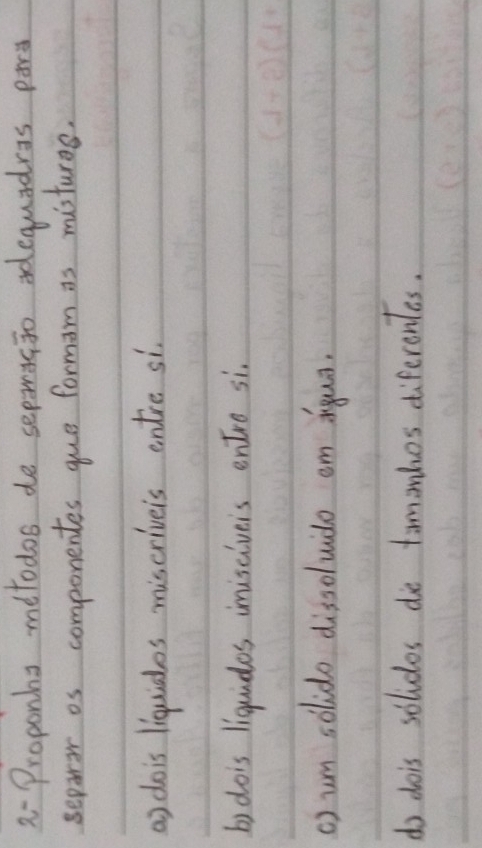 2- Proponha métodos de separação adequadras para
separar os componentes que formam as misturas.
a) dois líquidos miscríveis entre sí.
b) dois líquidos imiscíveis entre si.
c) um sólido dissolvido em água.
d) dois sólidos de tamanhos diferentes.